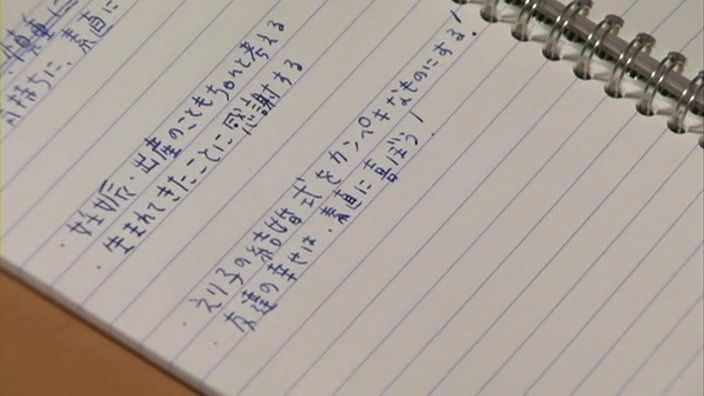 慎重に
気持ちに、素直に
・妊娠・出産のこともちゃんと考える
・生まれてきたことに感謝する
・えり子の結婚式をカンペキなものにする！
・友達の幸せは、素直に喜ぼう！